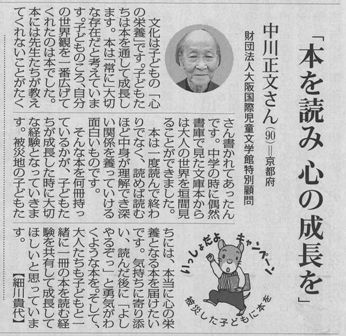 「本を読み 心の成長を」
中川正文さん(90)=京都府
財団法人大阪国際児童文学館特別顧問
文化は子どもの「心
の栄養」です。子どもた
ちは本を通して成長し
ます。本は非常に大切
な存在だと考えていま
す。子どものころ、自分
の世界観を一番広げて
くれたのは本でした。
本には先生たちが教え
てくれないことがたく
さん書かれてあったん
です。中学の時に偶然
書庫で見た文庫本から
は大人の世界を垣間見
ることができました。
本は一度読んで終わ
りでなく、読めば読む
ほど中身が理解でき深
い関係を養っていける
面白いものです。
そんな本を何冊持っ
ているかが、子どもた
ちが成長した時に大切
な経験となっていきま
す。被災地の子どもた
ちには、本当に心の栄
養となる本を届けたい
です。気持ちに寄り添
い、読んだ後に「よし
やるぞっ」と勇気がわ
くような本を。そして、
大人たちも子どもと一
緒に一冊の本を読む経
験を共有して成長して
ほしいと思っていま
す。【細川貴代】
いっしょだよ キャンペーン
被災した子どもに本を